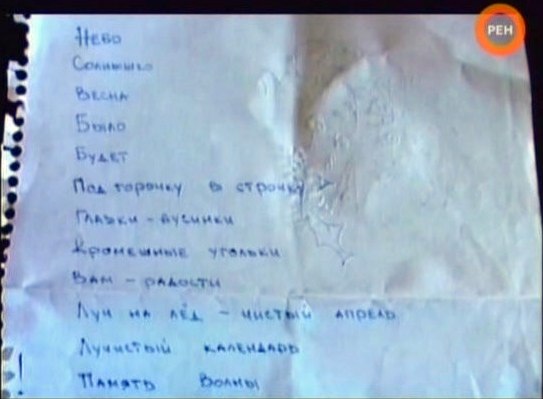 РЕН
Небо
Солнышко
Весна
Было
Будет
Под горочку в строчку
Глазки - бусинки
Кромешные угольки
Вам - радости
Луч на лёд - чистый апрель
Лучистый календарь
! Память Волны